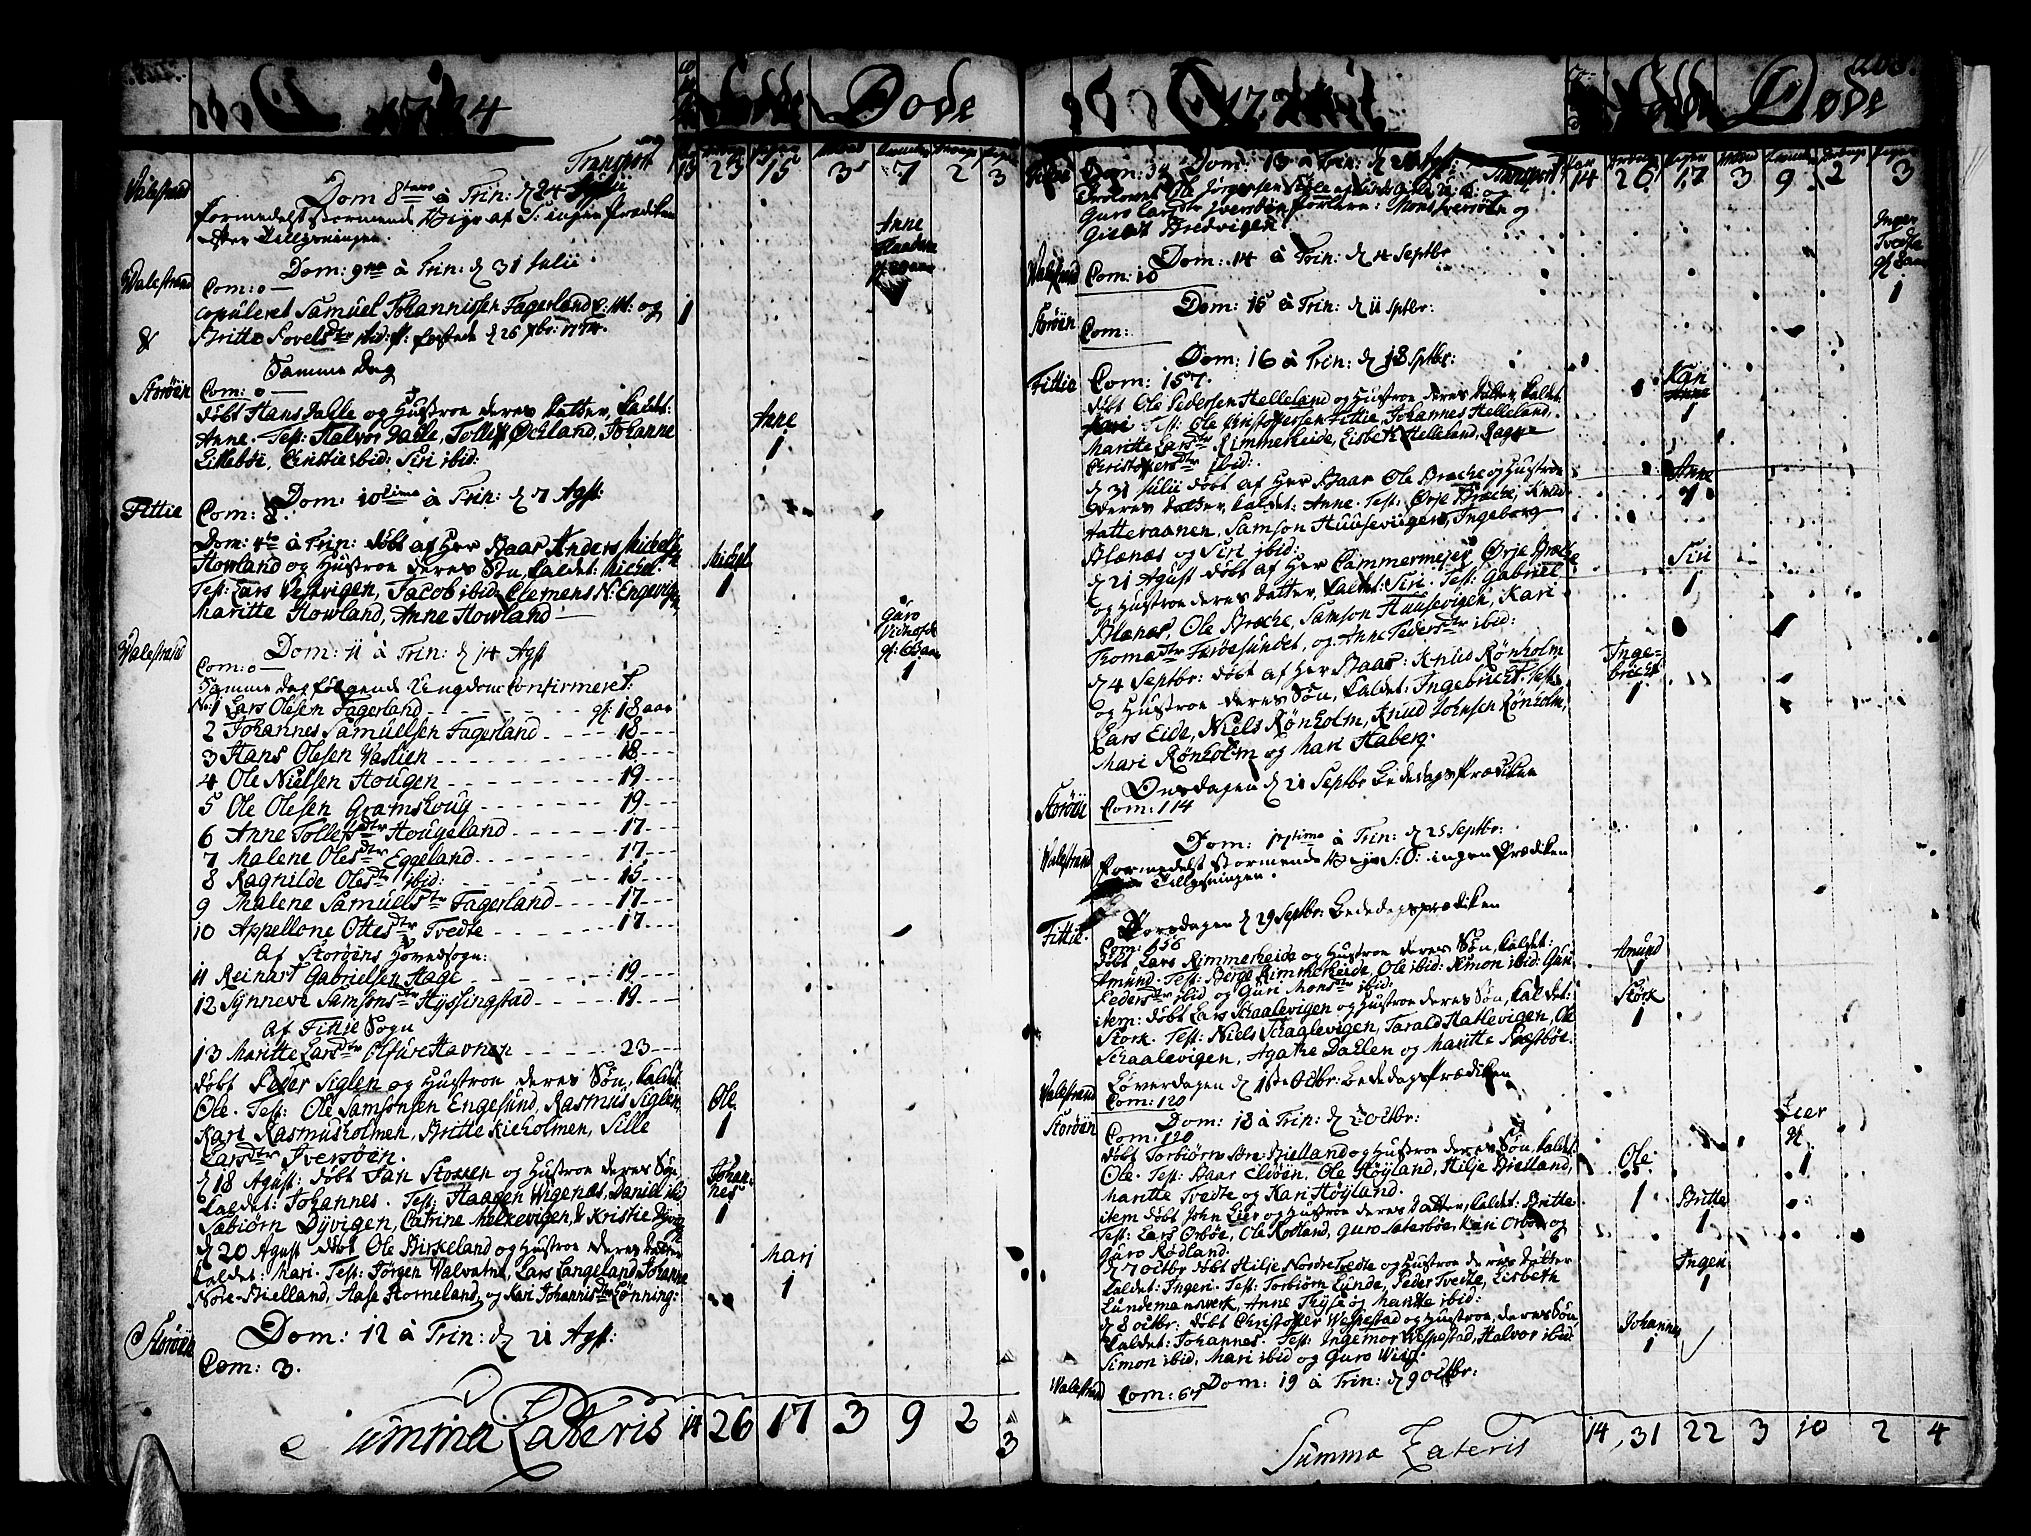 1744
Døde
Transport 13 23 15 3 7 2 3
Walestrand
Dom 8tavo à Trin: d 24 Julii
formedelst stormende Veyr af S: ingen Prædiken
efter Tillysningen.
Anne
Walestrand
Dom: 9na à Trin: d 31 Julii
Com: 0 —
copuleret Samuel Johannissen Fagerland E: M: og
Britte Povelsdtr ibid:
1
&
Samme Dag
Storøen
Com: 0 —
døbt Hans Dahle og Hustroe deres Datter, kaldet:
Anne. Test: Halvor Dahle, Tollef Øchland, Johanne
Littebøe, Christie ibid: Siri ibid:
Anne
1
Fittie
Dom: 10tima à Trin: d 7 Agst:
Com: 8.
Dom: 4ta à Trin: døbt af Her Baar Anders Michels:
Howland og Hustroe deres Søn, kaldet: Michel
Test: Lars Vestvigen, Jacob ibid: Clemens N: Engevig
Maritte Howland, Anne Howland —
Michel
1
Guro
1
Walestrand
Dom: 11 à Trin: d 14 Agst
Com: 0 —
Samme dag følgende Ungdom Confirmeret:
No: 1 Lars Olesen Fagerland - - - 18 aar
2 Johannes Samuelsen Fagerland - - - 18
3 Hans Olesen Vaslien - - - 18
4 Ole Nielsen Hougen - - - 19
5 Ole Olesen Gramshoug - - - 19
6 Anne Tollefsdtr Hougeland - - - 17
7 Malene Olesdtr Eggeland - - - 17
8 Ragnilde Olesdtr ibid: - - - 15
9 Malene Samuelsdtr Fagerland - - - 17
10 Appellone Ottesdtr Tvedte - - - 17
Af Storøens Hovedsogn:
11 Reinart Gabrielsen Hage - - - 19
12 Synneve Samsonsdtr Hyssingstad - - - 19
Af Fittie Sogn
13 Maritte Larsdtr Olfurs Havnen - - - 23
døbt Peder Siglen og Hustroe deres Søn, kaldet:
Ole. Test: Ole Samsonsen Engesund, Rasmus Siglen,
Kari Rasmusholmen, Britte Kieholmen, Sille
Larsdtr Iversøen.
Ole
1
d 18 Agust: døbt Jan Stossen og Hustroe deres Søn
kaldet: Johannes. Test: Haagen Wigenæs, Daniel ibid
Sæbiørn Dyvigen, Catrine Melkevigen, & Kristie Dyvig
Johannes
1
d 20 Agust døbt Ole Birkeland og Hustroe deres Datter
kaldet: Mari. Test: Jørgen Valvatne, Lars Langeland, Johanne
Nore-Bielland, Aase Horneland, og Kari Johannisdtr Lønning:
Mari
1
Storøen
Dom: 12 à Trin: d 21 Agst:
Com: 3.
Summa Lateris 14 26 17 3 9 2 3
Døde
Fittie
Com: 32 Dom: 13 à Trin: d 28 Agst: Transport 14 26 17 3 9 2 3
Trolovet Ole Jørgensen
Guro Larsdtr Iversøen
Gielit Bredvigen.
Inger
Tvedte
1
Walestrand
Dom: 14 à Trin: d 4 Septbr
Com: 10
Storøen
Dom: 15 à Trin: d 11 Septbr:
Com:
Fittie
Dom: 16 à Trin: d 18 Septbr:
Com: 157.
døbt Ole Pedersen Helleland og Hustroe deres Datter, kaldet
Kari. Test: Ole Christophersen Fittie, Johannes Helleland,
Maritte Larsdtr Rimmereide, Lisbeth Helleland, Ragne
Christophersdtr ibid:
Kari
1
d 31 Julii døbt af Her Baar Ole Broche og Hustroe
deres Datter, kaldet: Anne. Test: Ørje Broche, Knud
Katteraanen, Samson Huusevigen, Ingeborg
Blænæs og Siri ibid:
Anne
1
d 21 Agust døbt af Her Cammermejer Ørje Broche
og Hustroe deres Datter, kaldet: Siri. Test: Gabriel
Blænæs, Ole Broche, Samson Huusevigen, Kari
Thomædtr Færøesundet, og Anne Pedersdtr ibid:
Siri
1
d 4 Septbr: døbt af Her Baar: Knud Rønholm
og Hustroe deres Søn, kaldet: Ingebricht. Test:
Lars Eide, Niels Rønholm, Knud Johnsen Rønholm,
Mari Rønholm og Mari Haberg.
Ingebricht
1
Storøen
Onsdagen d 21 Septbr Bededags Prædiken
Com: 114
Walestrand
Dom: 17tima à Trin: d 25 Septbr:
formedelst stormende Veyr S: O: ingen Prædiken
Tillysningen.
Fittie.
Torsdagen d 29 Septbr: Bededagsprædiken
Com: 156
døbt Lars Rimmerheide og Hustroe deres Søn, kaldet:
Amund. Test: Børge Rimmerheide, Ole ibid: Simon ibid: Guri
Pedersdtr ibid og Guri Monsdtr ibid:
Amund
1
item: døbt Lars Schaalevigen og Hustroe deres Søn, kaldet:
Stork. Test: Niels Schaalevigen, Tarald Hatlevigen, Ole
Schaalevigen, Agathe Dahlen og Maritte Præstbøe.
Størk
1
Walestrand
Løverdagen d 1ste Octbr: Bededags Prædiken
Com: 120
Storøen
Dom: 18 à Trin: d 2 Octbr:
Com: 120
døbt Torbiørn Øre-Bielland og Hustroe deres Søn, kaldet:
Ole. Test: Baar Elvøen, Ole Høyland, Hilje Bielland,
Maritte Tvedte og Kari Høyland.
Ole
1
Lier
1
item døbt John Lier og Hustroe deres Datter, kaldet: Britte
Test: Lars Orbøe, Ole Rødland, Guro Sæterbøe, Kari Orbøe og
Guro Rødland.
Britte
1
d 7 Octbr døbt Hilje Nordre Tvedte og Hustroe deres Datter
kaldet: Ingeri. Test: Torbiørn Lunde, Peder Tvedte, Lisbeth
Lundemanswerk, Anne Thyse og Maritte ibid:
Ingeri
1
d 8 Octbr: døbt Christoffer Wespestad og Hustroe, deres Søn,
kaldet: Johannes. Test: Ingemor Wespestad, Halvor ibid:
Simon ibid, Mari ibid og Guro Wiig.
Johannes
1
Walestrand
Dom: 19 à Trin: d 9 Octbr:
Com: 67
Summa Lateris 14 31 22 3 10 2 4